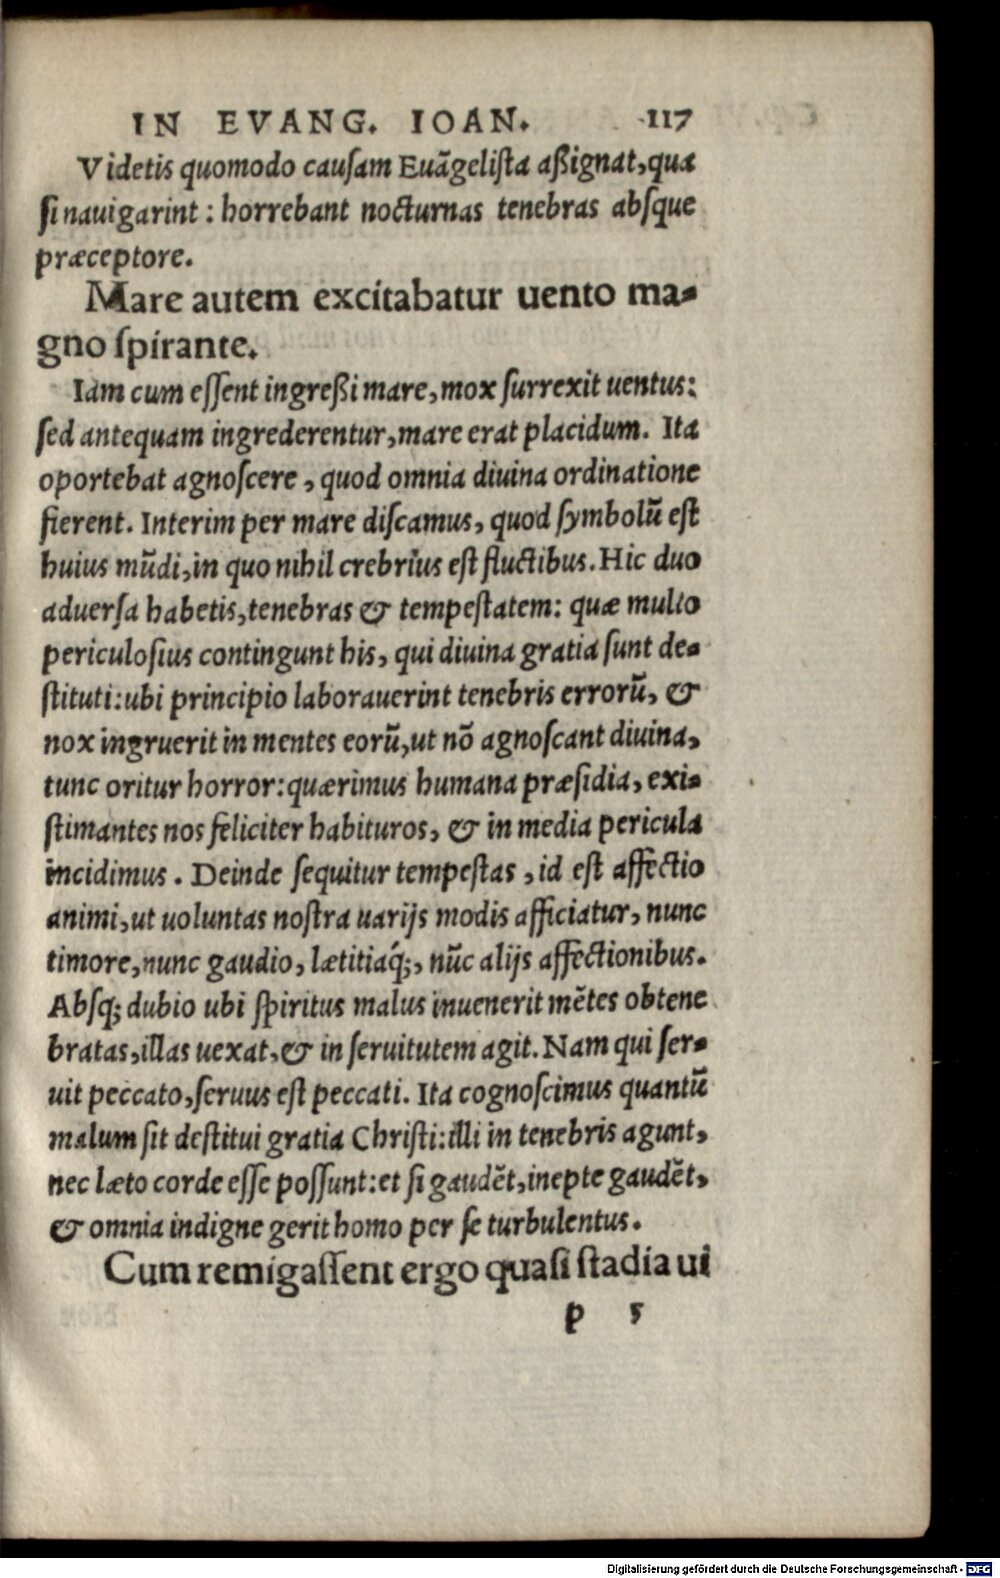 IN EVANG. IOAN. 117
Videtis quomodo causam Euãgelista aßignat, qua
si nauigarint: horrebant nocturnas tenebras absque
præceptore.
Mare autem excitabatur uento ma-
gno spirante.
Iam cum essent ingreßi mare, mox surrexit uentus:
sed antequam ingrederentur, mare erat placidum. Ita
oportebat agnoscere, quod omnia diuina ordinatione
fierent. Interim per mare discamus, quod symbolũ est
huius mũdi, in quo nihil crebrius est fluctibus. Hic duo
aduersa habetis, tenebras & tempestatem: quæ multo
periculosius contingunt his, qui diuina gratia sunt de-
stituti: ubi principio laborauerint tenebris errorũ, &
nox ingruerit in mentes eorũ, ut nõ agnoscant diuina,
tunc oritur horror: quærimus humana præsidia, exi-
stimantes nos feliciter habituros, & in media pericula
incidimus. Deinde sequitur tempestas, id est affectio
animi, ut uoluntas nostra uarijs modis afficiatur, nunc
timore, nunc gaudio, lætitiaq́;, nũc alijs affectionibus.
Absq; dubio ubi spiritus malus inuenerit mẽtes obtene
bratas, illas uexat, & in seruitutem agit. Nam qui ser-
uit peccato, seruus est peccati. Ita cognoscimus quantũ
malum sit destitui gratia Christi: illi in tenebris agunt,
nec læto corde esse possunt: et si gaudẽt, inepte gaudẽt,
& omnia indigne gerit homo per se turbulentus.
Cum remigassent ergo quasi stadia ui
p 5
Digitalisierung gefördert durch die Deutsche Forschungsgemeinschaft - DFG